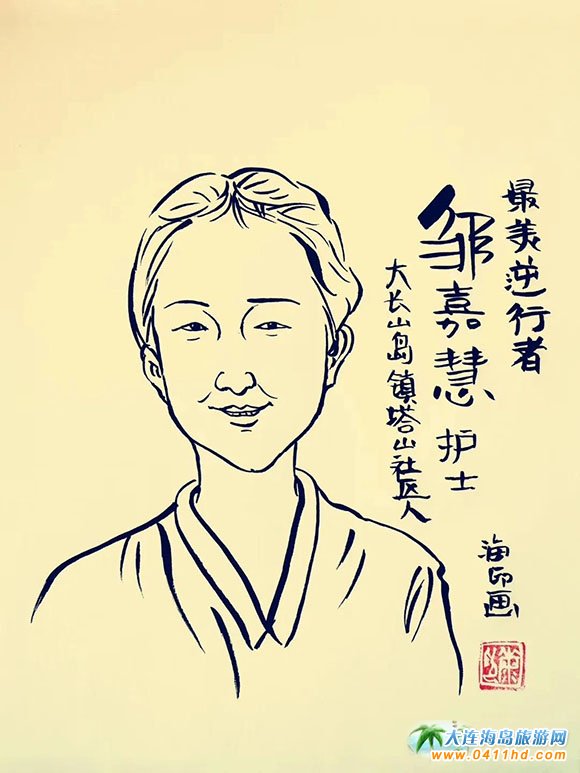 最美逆行者
邹嘉慧 护士
大长山岛镇塔山社区人
海印画
大连海岛旅游网
www.0411hd.com